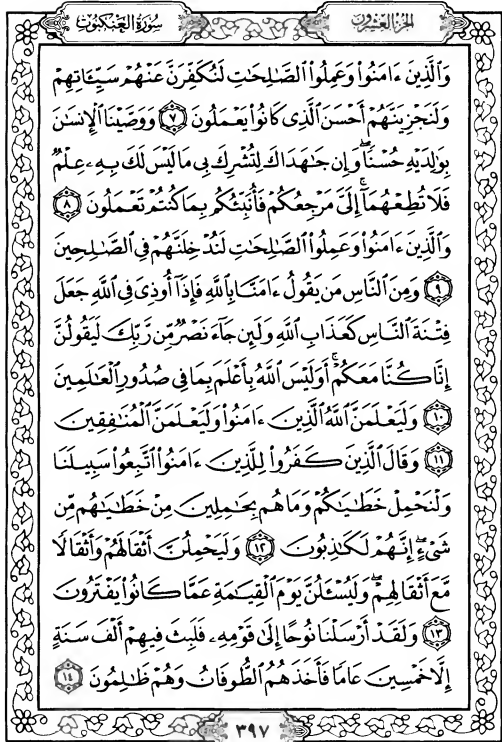 سُورَةُ العَنكَبُوت
الجُزءُ العِشرُون
وَٱلَّذِينَ ءَامَنُواْ وَعَمِلُواْ ٱلصَّٰلِحَٰتِ لَنُكَفِّرَنَّ عَنْهُمْ سَيِّـَٔاتِهِمْ
وَلَنَجْزِيَنَّهُمْ أَحْسَنَ ٱلَّذِى كَانُواْ يَعْمَلُونَ ٧ وَوَصَّيْنَا ٱلْإِنسَٰنَ
بِوَٰلِدَيْهِ حُسْنًا ۖ وَإِن جَٰهَدَاكَ لِتُشْرِكَ بِى مَا لَيْسَ لَكَ بِهِۦ عِلْمٌ
فَلَا تُطِعْهُمَآ ۚ إِلَىَّ مَرْجِعُكُمْ فَأُنَبِّئُكُم بِمَا كُنتُمْ تَعْمَلُونَ ٨
وَٱلَّذِينَ ءَامَنُواْ وَعَمِلُواْ ٱلصَّٰلِحَٰتِ لَنُدْخِلَنَّهُمْ فِى ٱلصَّٰلِحِينَ
٩ وَمِنَ ٱلنَّاسِ مَن يَقُولُ ءَامَنَّا بِٱللَّهِ فَإِذَآ أُوذِىَ فِى ٱللَّهِ جَعَلَ
فِتْنَةَ ٱلنَّاسِ كَعَذَابِ ٱللَّهِ وَلَئِن جَآءَ نَصْرٌ مِّن رَّبِّكَ لَيَقُولُنَّ
إِنَّا كُنَّا مَعَكُمْ ۚ أَوَلَيْسَ ٱللَّهُ بِأَعْلَمَ بِمَا فِى صُدُورِ ٱلْعَٰلَمِينَ
١٠ وَلَيَعْلَمَنَّ ٱللَّهُ ٱلَّذِينَ ءَامَنُواْ وَلَيَعْلَمَنَّ ٱلْمُنَٰفِقِينَ
١١ وَقَالَ ٱلَّذِينَ كَفَرُواْ لِلَّذِينَ ءَامَنُواْ ٱتَّبِعُواْ سَبِيلَنَا
وَلْنَحْمِلْ خَطَٰيَٰكُمْ وَمَا هُم بِحَٰمِلِينَ مِنْ خَطَٰيَٰهُم مِّن
شَىْءٍ ۖ إِنَّهُمْ لَكَٰذِبُونَ ١٢ وَلَيَحْمِلُنَّ أَثْقَالَهُمْ وَأَثْقَالًا
مَّعَ أَثْقَالِهِمْ ۖ وَلَيُسْـَٔلُنَّ يَوْمَ ٱلْقِيَٰمَةِ عَمَّا كَانُواْ يَفْتَرُونَ
١٣ وَلَقَدْ أَرْسَلْنَا نُوحًا إِلَىٰ قَوْمِهِۦ فَلَبِثَ فِيهِمْ أَلْفَ سَنَةٍ
إِلَّا خَمْسِينَ عَامًا فَأَخَذَهُمُ ٱلطُّوفَانُ وَهُمْ ظَٰلِمُونَ ١٤
٣٩٧